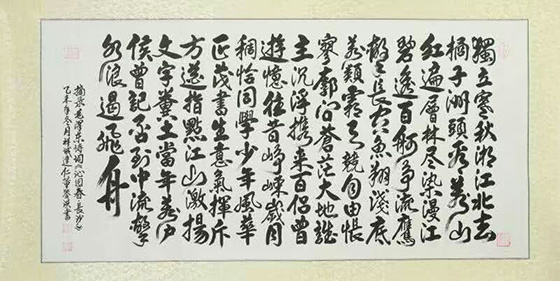 獨立寒秋湘江北去
橘子洲頭看萬山
红遍層林尽染漫江
碧透百舸争流鹰
擊長空魚翔淺底
萬類霜天競自由悵
寥廓问蒼茫大地誰
主沉浮携来百侣曾
遊憶往昔崢嶸歲月
稠恰同學少年風華
正茂書生意氣揮斥
方遒指點江山激揚
文字糞土當年萬户
侯曾記否到中流擊
水浪遏飛舟
摘录毛澤東詩詞《沁园春 長沙》
乙未年冬月 書